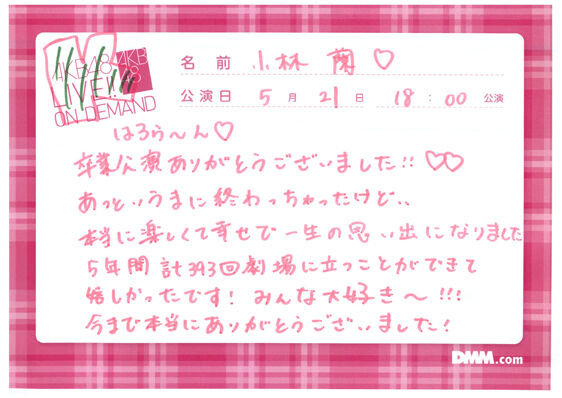 AKB48
LIVE!!
ON DEMAND
AKB
48
名前 小林 蘭♡
公演日 5月21日 18:00 公演
はろら〜ん♡
卒業公演ありがとうございました!!♡♡
あっというまに終わっちゃったけど、、
本当に楽しくて幸せで一生の思い出になりました
5年間計393回劇場に立つことができて
嬉しかったです! みんな大好き〜!!!
今まで本当にありがとうございました!
DMM.com